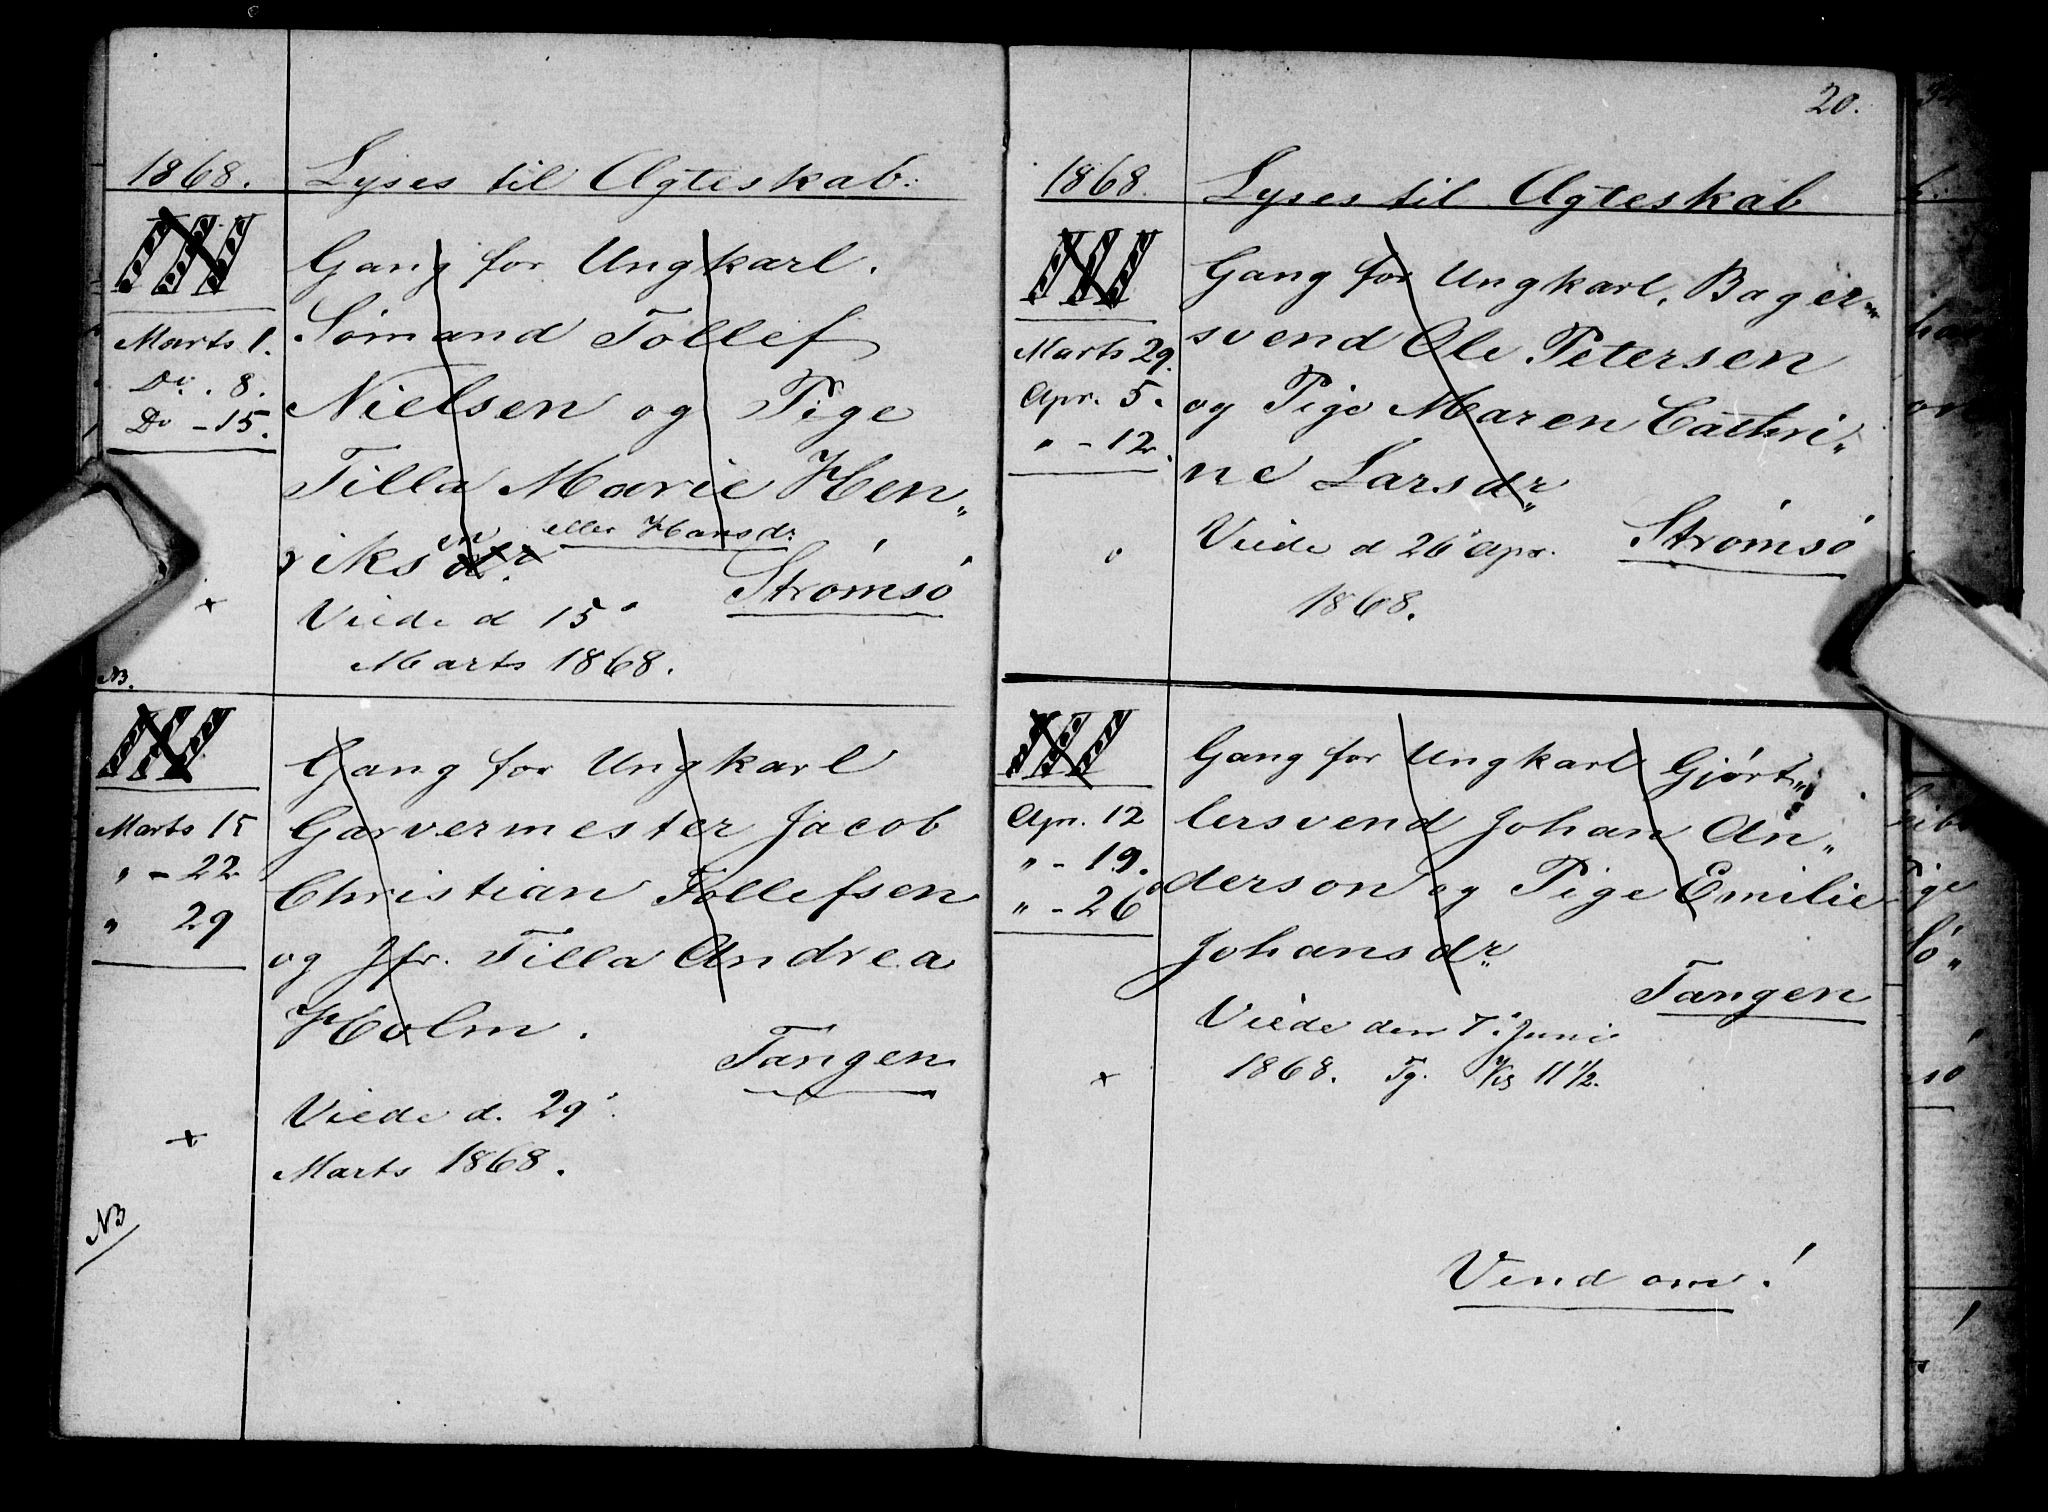 1868. Lyses til Ægteskab:
III
Gang for Ungkarl.
Sømand Tollef
Nielsen og Pige
Tilla Marie Hen„
riksen eller Hansdr
Strømsö
Marts 1.
Do . 8.
Do - 15.
+
Viede d 15de
Marts 1868.
NB.
III
Gang for Ungkarl
Garvermester Jacob
Christian Tollefsen
og Jfr. Tilla Andrea
Holm.
Tangen
Marts 15
" - 22
" 29
+
Viede d. 29:
Marts 1868.
NB
20.
1868. Lyses til Ægteskab
III
Gang for Ungkarl, Bager„
svend Ole Petersen
og Pige Maren Cathri„
ne Larsdr
Strømsö
Marts 29.
Apr. 5.
" - 12.
Viede d 26 Apr.
1868.
III
Gang for Ungkarl Gjört„
lersvend Johan An„
derson og Pige Emilie
Johansdr
Tangen
Apr. 12
" - 19.
" - 26
+
Viede den 7. Juni
1868. Tg. Kl 11½.
Vend om!